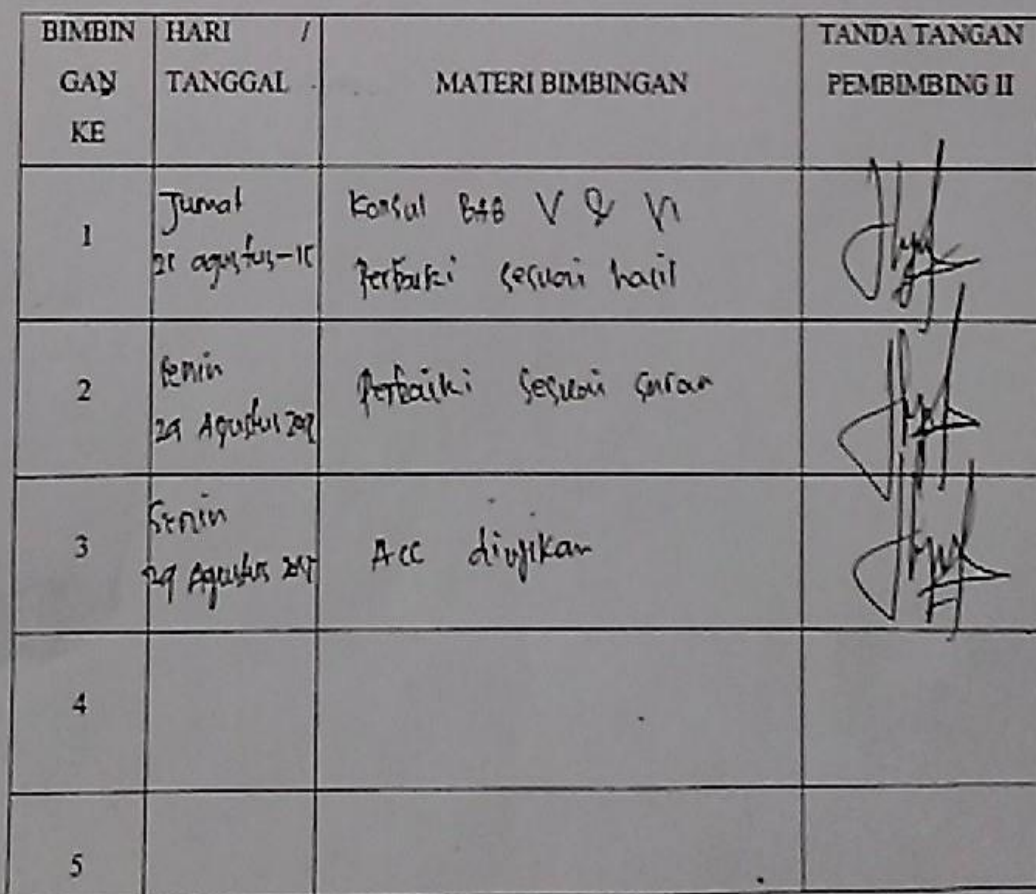 BIMBIN
GAN
KE
HARI /
TANGGAL
MATERI BIMBINGAN
TANDA TANGAN
PEMBIMBING II
1
Jumat
agustus-15
Konsul BAB V & VI
Perbaiki sesuai hasil
2
Senin
Agustus
Perbaiki sesuai saran
3
Senin
29 Agustus
Acc diujikan
4
5